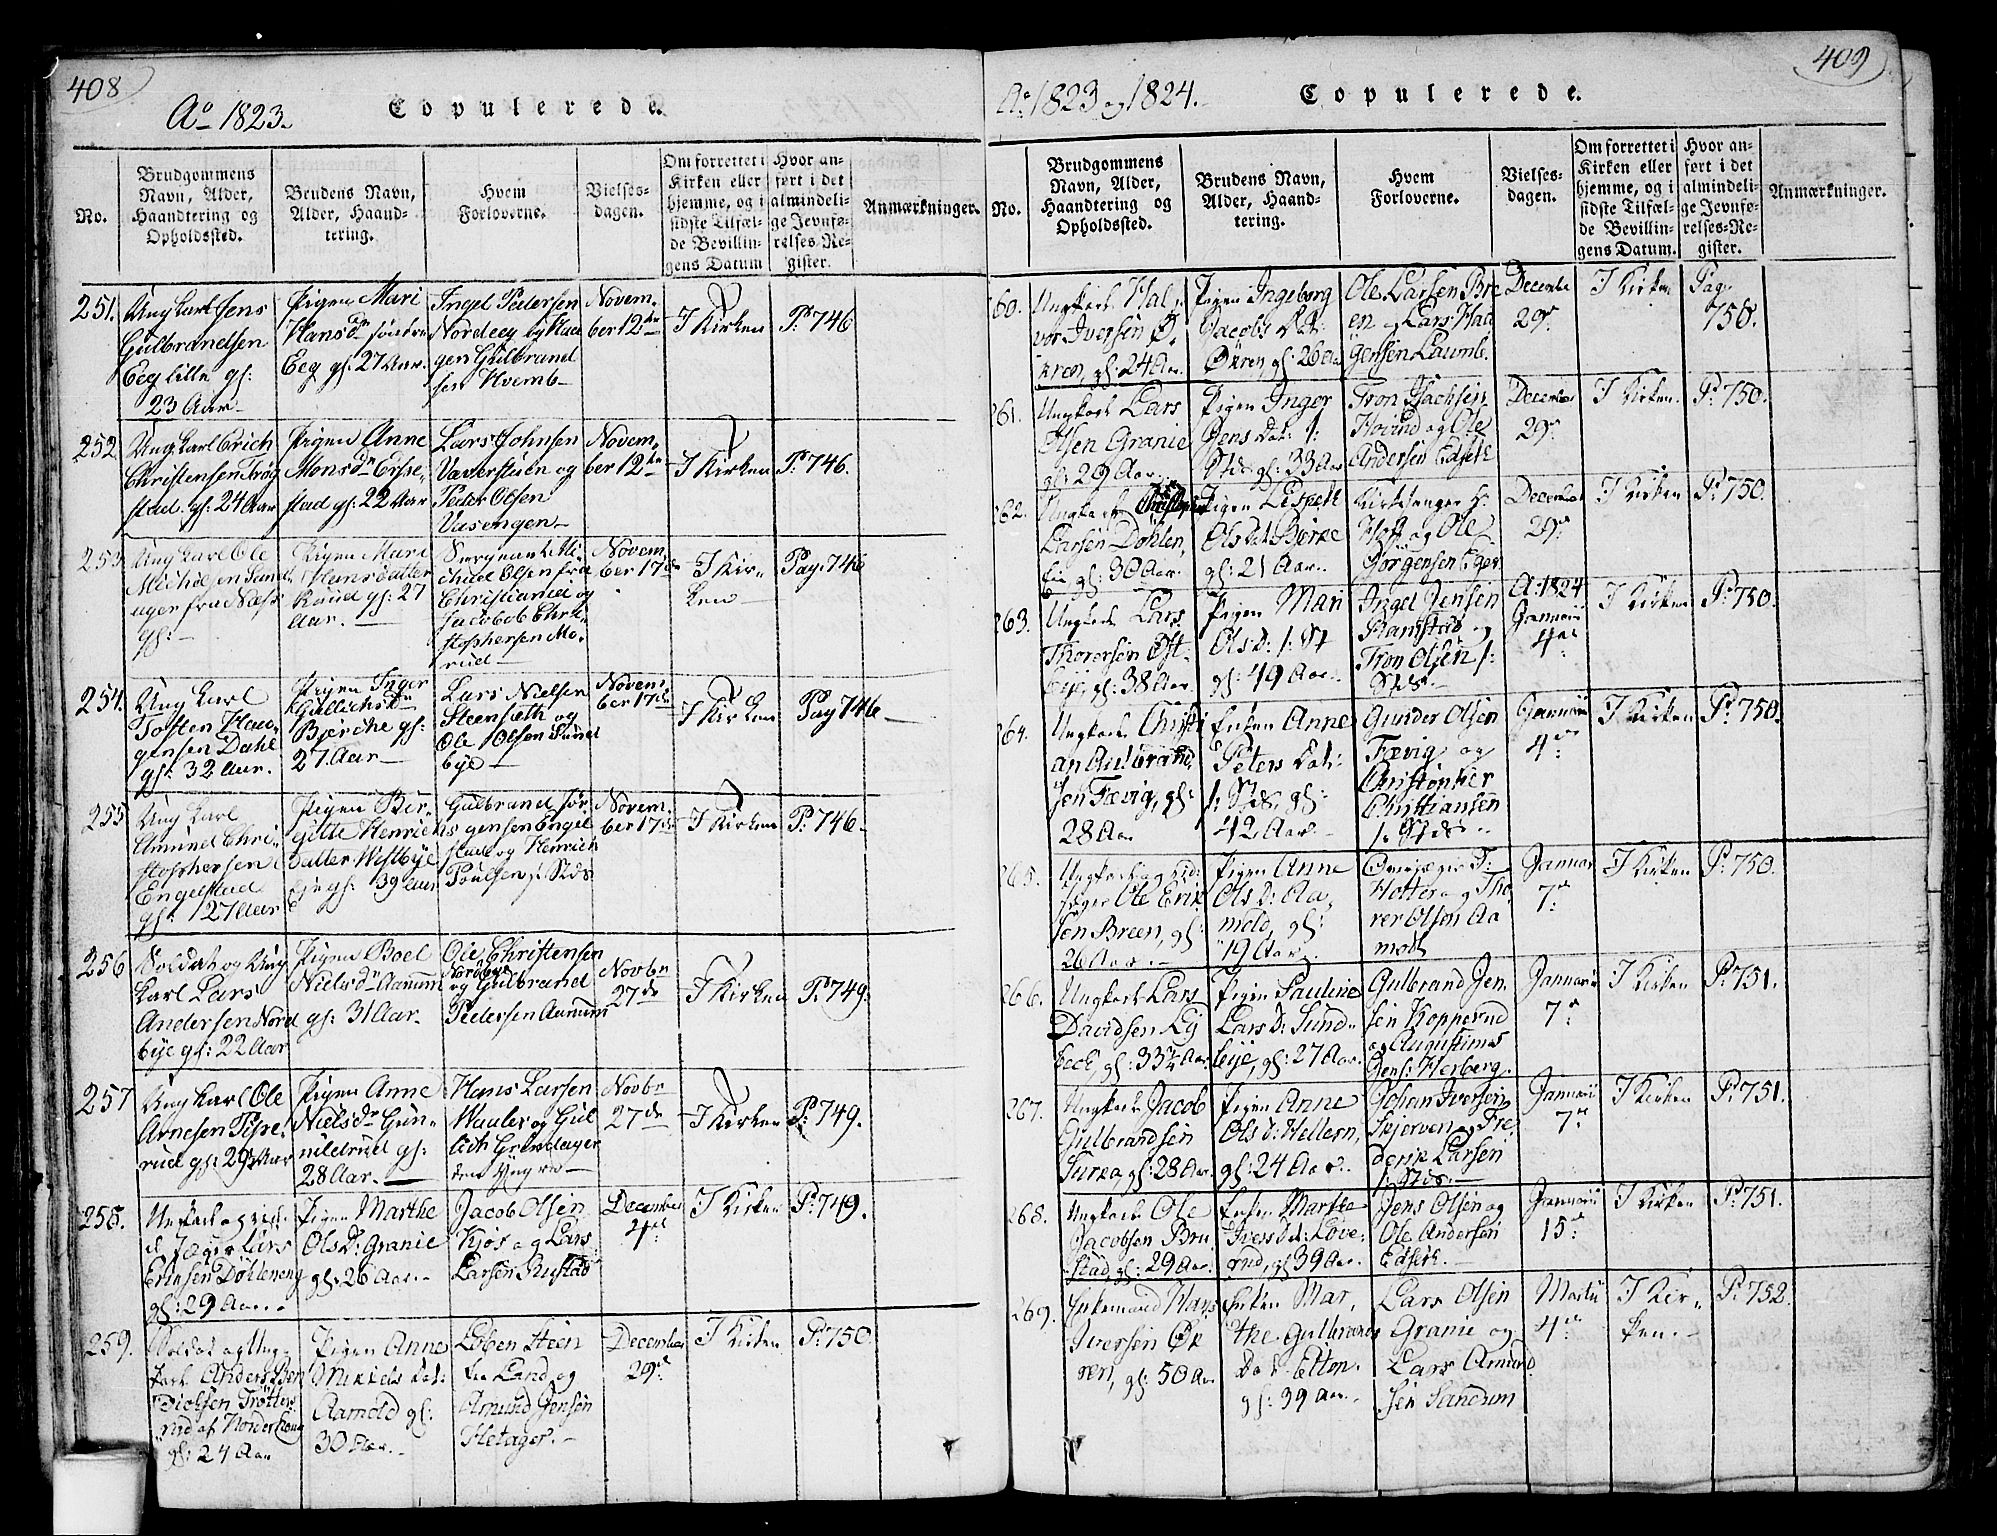 408
Ao 1823.
Copulerede.
No.
Brudgommens
Navn, Alder,
Haandtering og
Opholdssted.
Brudens Navn,
Alder, Haand-
tering.
Hvem
Forloverne.
Vielses-
dagen.
Om forrettet i
Kirken eller
hjemme, og i
sidste Tilfæl-
de Bevillin-
gens Datum
Hvor an-
ført i det
almindeli-
ge Jevnfø-
relses-Re-
gister.
Anmærkninger.
251.
Ung karl Jens
Gulbrandsen
Eeg lille gl:
23 Aar
Pigen Mari
Hansdr
Eeg gl. 27 Aar.
Ingel Pedersen
Nordeeg og Haa
gen Gulbrand
sen Hvemb
Novem-
ber 12te
I Kirken
P. 746
252
Ung karl Erich
Christensen Trøg
stad gl: 24 Aar
Pigen Anne
Monsdr
stad gl: 22 Aar
Lars Johnsen
og
Peder Olsen
Vasengen
Novem-
ber 12te
I Kirken
P. 746.
253
Ung karl Ole
Michelsen Sand
ager fra Næss
gl:
Pigen Mari
Hansdatter
Raud gl: 27
Aar.
Sergeant Mi-
chael Olsen fra
Christiania og
Jacobob Chri-
stophersen Mo-
rud
Novem
ber 17de
I Kir-
ken
Pag. 746
254.
Ung karl
Tosten Haa-
gensen Dahl
gl: 32 Aar.
Pigen Inger
Gullichsdr
Bjerche gl:
27 Aar
Lars Nielsen
Steensæth og
Ole Olsen Sund
bye
Novem
ber 17de
I Kirken
Pag 746
255
Ung karl
Amund Chri-
stophersen
Engelstad
gl: 27 Aar
Pigen Bir-
gitte Henrichs
datter Westbye
Eje gl: 39 Aar
Gulbrand Jør
gensen Engel
stad og Henrich
Poulsen j: Stds
Novem-
ber 17de
I Kirken
P. 746.
256
Soldat og Ung
karl Lars
Andersen Nord
bye gl: 22 Aar
Pigen Boel
Nielsdr Aamum
gl: 31 Aar
Ole Christensen
Nordbye
og Gulbrand
Pedersen Aamum
Novbr
27de
I Kirken
P. 749.
257
Ung karl Ole
Arnesen Tispe-
rud gl: 29 Aar
Pigen Anne
Nielsdr Gun-
nildrud gl:
28 Aar.
Hans Larsen
Wauler og Gul
lich Grindager
Novbr
27de
I Kirken
P. 749.
258.
Ungkarl og
Jæger Lars
Eriksen Døhleneng
gl: 29 Aar.
Pigen Marthe
Ols D: Granie
gl. 26 Aar.
Jacob Olsen
Kjøs og Lars
Larsen Rustad
December
4de
I Kirken
P. 749.
259.
Soldat og Ung-
karl Anders Ben
Trøtte
rud af Norderhoug
gl: 24 Aar
Pigen Anne
Mikkels Dat:
Aamold gl:
30 Aar.
Loben Steen
Land og
Amund Jensen
Hetager.
December
29de
I Kirken
P. 750.
409
Ao 1823 og 1824.
Copulerede.
No.
Brudgommens
Navn, Alder,
Haandtering og
Opholdssted.
Brudens Navn,
Alder, Haand-
tering.
Hvem
Forloverne.
Vielses-
dagen.
Om forrettet i
Kirken eller
hjemme, og i
sidste Tilfæl-
de Bevillin-
gens Datum.
Hvor an-
ført i det
almindeli-
ge Jevnfø-
relses-Re-
gister.
Anmærkninger.
60.
Ungkarl Hal-
vor Iversen Ø-
kren, gl: 24 Aar.
Pigen Ingeborg
Jacobs Dat:
Økren, gl: 26 Aar
Ole Larsen Bre
en og Lars Haa
gensen Laumb.
December
29de
I Kirken
Pag.
750.
261.
Ungkarl Lars
Olsen Granie
gl: 29 Aar.
Pigen Inger
Jens Dat: i:
Stds gl: 33 Aar
Tron Isachsen
Hovind og Ole
Andersen Edseth
December
29de
I Kirken.
P. 750.
262.
Ungkarl Christopher
Larsen Døhlen,
Eie gl: 30 Aar.
Pigen Lispeth
Ols Dat: Bierke
gl: 21 Aar.
Kirkesanger H:
Hoff og Ole
Jørgensen Eger
December
29de
I Kirken
P. 750.
263.
Ungkarl Lars
Thoresen Øst-
bye gl: 38 Aar.
Pigen Mari
Ols D: i: St
gl: 49 Aar.
Ingel Jensen
Ramstad og
Tron Olsen i:
Stds.
A. 1824
Januarii
4de
I Kirken
P. 750.
264.
Ungkarl Christi
an Gulbrand
sen Fævig, gl:
28 Aar
Enken Anne
Peters Dat:
i: Stds, gl:
42 Aar.
Gunder Olsen
Fævig og
Christopher
Christiansen
i: Stds.
Januarii
4de
I Kirken
P. 750.
265.
Ungkarl og rid:
Jæger Ole Erik
sen Breen, gl:
26 Aar.
Pigen Anne
Ols D: Aa-
mold, gl:
19 Aar.
Overjæger D:
Holter og Tho
rer Olsen Aa
modt
Januar
7de
I Kirken
P. 750.
266.
Ungkarl Lars
Davidsen Ly
beck, gl: 33¾ Aar
Pigen Pauline
Lars D: Sund-
bye, gl: 27 Aar.
Gulbrand Jen
sen Kopperud
og Augustinus
Jens: Herberg.
Januarii
7de
I Kirken
P. 751.
267.
Ungkarl Jacob
Gulbrandsen
Surka gl: 28 Aar.
Pigen Anne
Ols D: Hellern,
gl: 24 Aar.
Johan Iversen
Skjerven og Fre
derik Larsen
i: Stds.
Januarii
7de
I Kirken
P. 751.
268.
Ungkarl Ole
Jacobsen Bru
stad, gl: 29 Aar.
Enken Marthe
Ivers Dat: Løve-
rud, gl: 39 Aar.
Jens Olsen og
Ole Andersen
Edseth.
Januarii
15de
I Kirken
P. 751.
269.
Enkemand Hans
Iversen Øk
ren, gl: 50 Aar
Enken Mar-
the Gulbrands
Dat: Elton.
gl: 39 Aar.
Lars Olsen
Granie og
Lars Amund
sen Sandum
Martii
4de
I Kir-
ken.
P. 752.